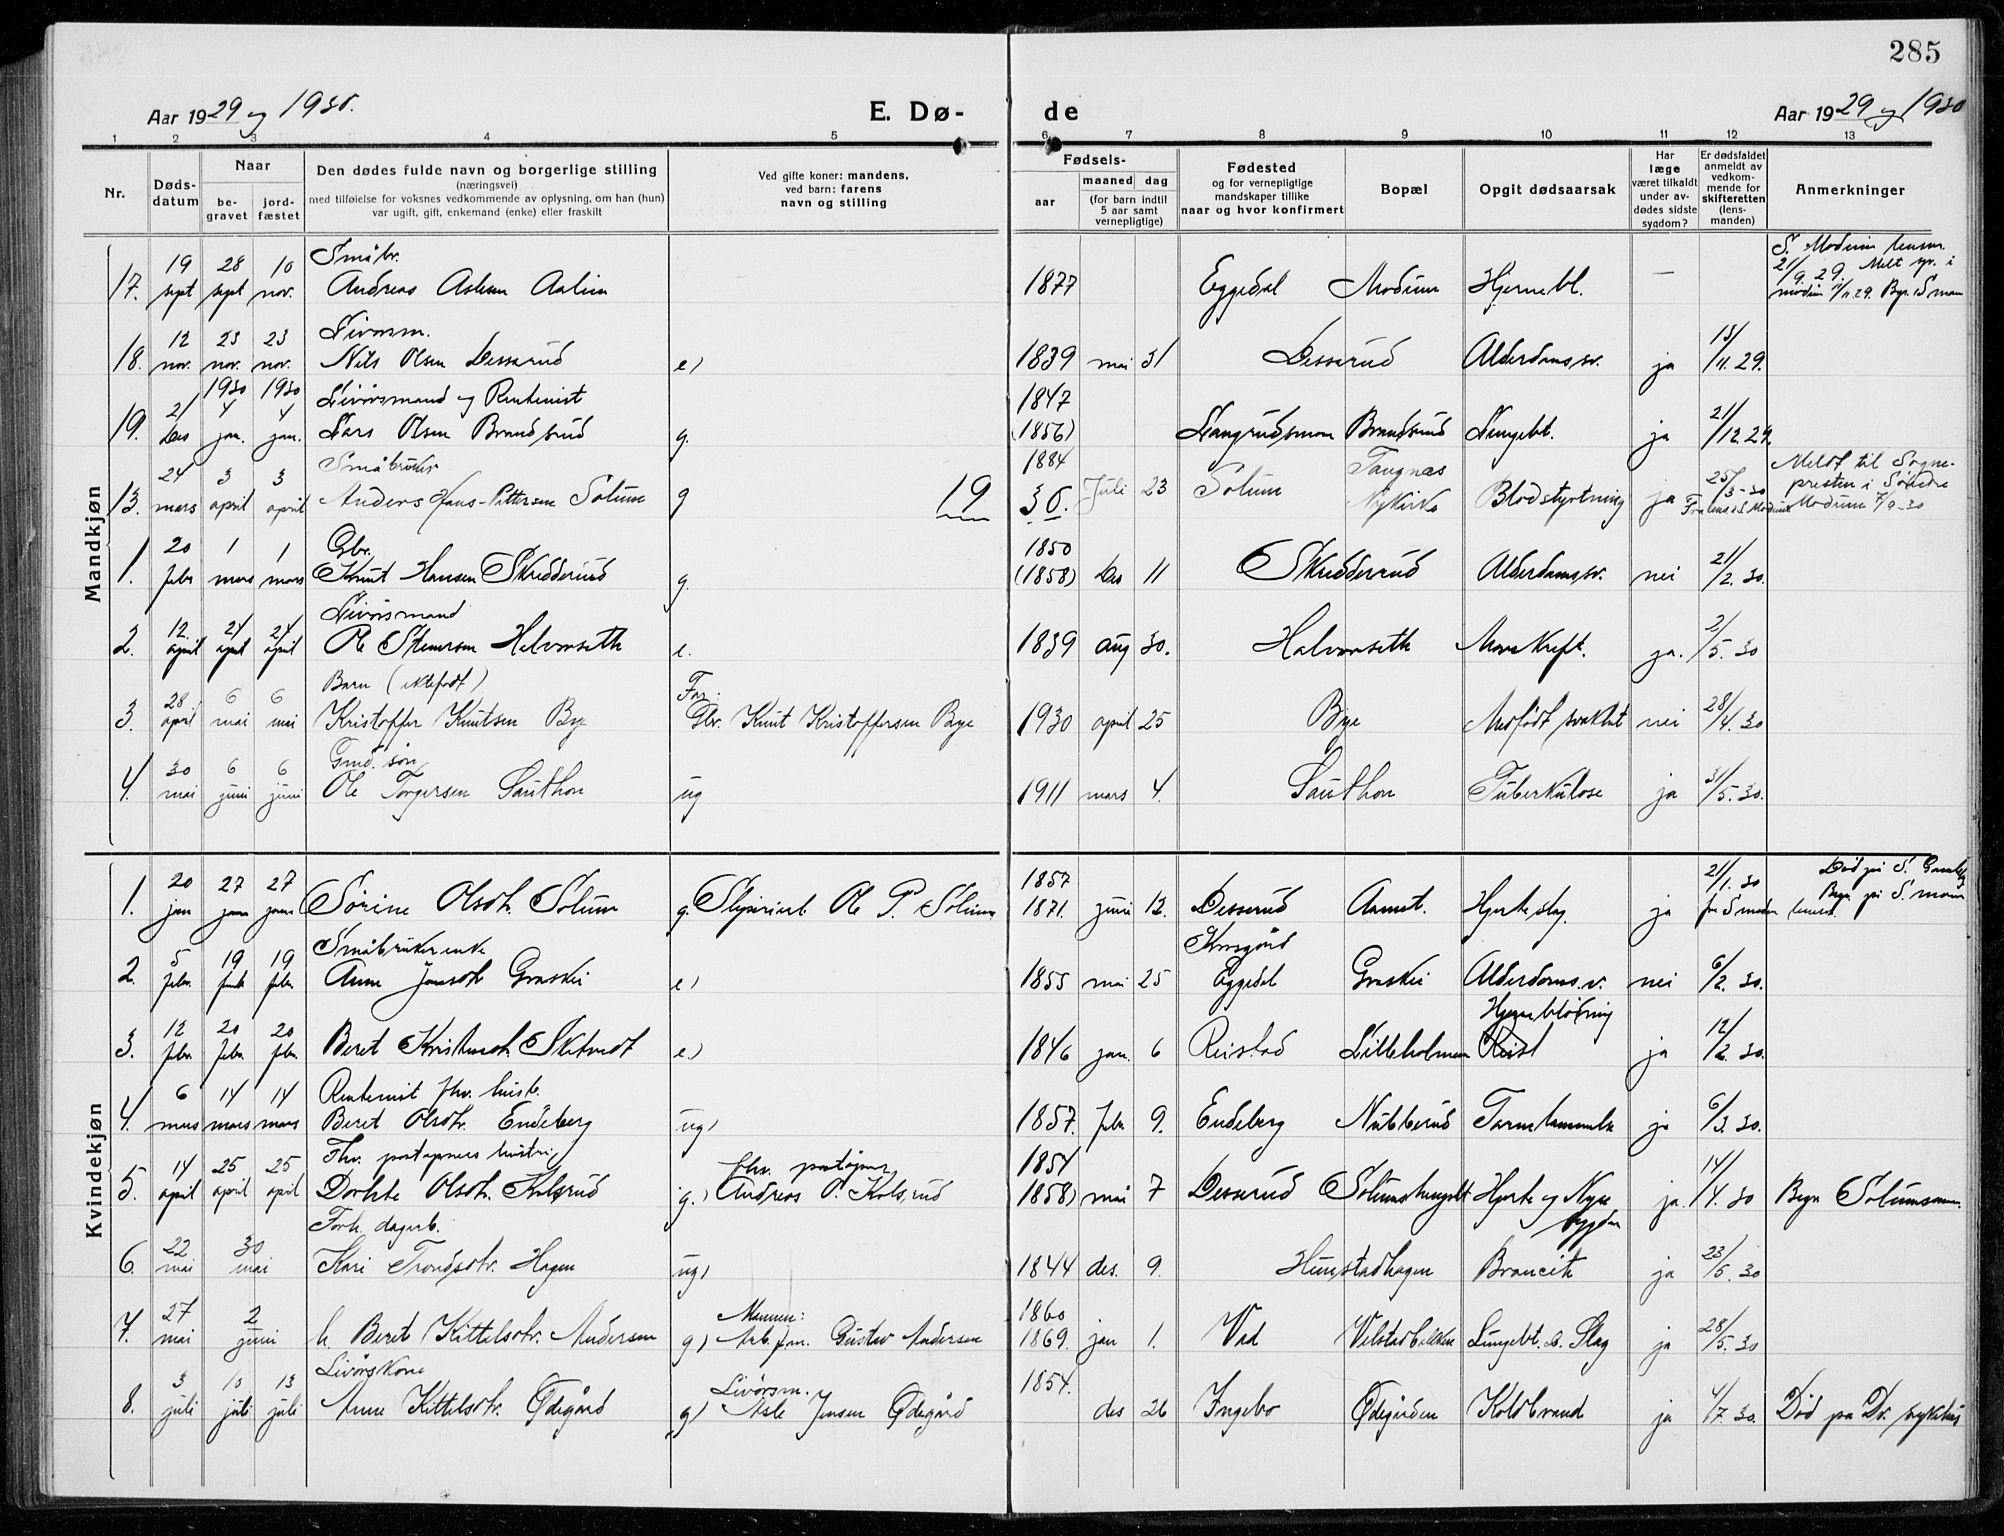 285
Aar 1929 og 1930.
E. Dø-
de
Aar 1929 og 1930
1 2 3 4 5 6 7 8 9 10 11 12 13
Nr.
Døds-
datum
Naar
be-
gravet
jord-
fæstet
Den dødes fulde navn og borgerlige stilling
(næringsvei)
med tilføielse for voksnes vedkommende av oplysning, om han (hun)
var ugift, gift, enkemand (enke) eller fraskilt
Ved gifte koner: mandens,
ved barn: farens
navn og stilling
Fødsels-
aar
maaned
dag
(for barn indtil
5 aar samt
vernepligtige)
Fødested
og for vernepligtige
mandskaper tillike
naar og hvor konfirmert
Bopæl
Opgit dødsaarsak
Har
læge
været tilkaldt
under av-
dødes sidste
sygdom?
Er dødsfaldet
anmeldt av
vedkom-
mende for
skifteretten
(lens-
manden)
Anmerkninger
Mandkjøn
Småbr.
17. 19 sept 28 sept 10 nov. Andreas Aslesen 1877 Eggedal Modum Hjernebl. —
S. Modum
21/9.29. Melt
Modum
18. 12 nov. 23 nov. 23 nov. Nils Olsen Desserud e) 1839 mai 31 Desserud Alderdomssv. ja 13/11.29.
1930 1930
Livørsmand og Rentenist
19. 21 Des 4 jan. 4 jan. Lars Olsen Brandsrud g. 1847 (1856) Brandsrud Lungebt. ja 21/12 29.
Småbruker
13. 24 mars 3 april 3 april Anders Hans-Pettersen Solum g 19 30. 1884 Juli 23 Solum Tangnæs Nykirke Blodstyrtning ja 25/3-30
Meldt til Sogne-
presten i Søndre
Modum 7/9-30
Gbr.
1. 20 febr 1 mars 1 mars Knut Hansen Skredderud g. 1850 (1858) Des 11 Skredderud Alderdomssv. nei 21/2.30.
Livørsmand
2. 12 april 24 april 24 april Ole Stenersen Halvorseth e. 1839 aug 30. Halvorseth Mavekreft. ja. 2/5.30
Barn (ektefødt)
Far:
3. 28 april 6 mai 6 mai Kristoffer Knutsen Bye Gbr. Knut Kristoffersen Bye 1930 april 25 Bye Medfødt svakhet nei 28/4.30
Gmd. søn
4. 30 mai 6 juni 6 juni Ole Torgersen Sauthon ug 1911 mars 4. Sauthon Tuberkulose ja 31/5.30.
Kvindekjøn
1. 20 jan 27 jan 27 jan Sørine Olsdt. Solum g. Ole P. Solum 1857 1871. juni 12. Desserud Aamot. Hjerteslag. ja 21/1.30
Død på S.
Småbrukerenke
2. 5 febr. 19 febr 19 febr Anne Jonsdt Graskei e) 1855 mai 25 Eggedal Graskei Alderdoms.v. nei 6/2.30.
3. 12 febr. 20 febr. 20 febr. Beret e) 1846 jan. 6 Reistad Lilleholmen Hjerneblødning ja 12/2.30.
Rentenist fhv. hush.
4. 6 mars 14 mars 14 mars Beret Olsdtr. Endeberg ug) 1857. febr 9. Endeberg Nubberud ja 6/3.30.
Fhv. postapners hustru
fhv. postapner
5. 14 april 25 april 25 april Dorthe Olsdtr. Kolsrud g.) Andreas O. Kolsrud 1854 1858) mai 7 Desserud Hjerte og Nyre sygdom ja. 14/4.30
Forh. dagarb.
6. 22 mai 30 mai Kari Trondsdtr. Hagen ug) 1844 des. 9. Hunstadhagen ja 23/5.30
Mannen:
7. 27 mai 2 juni h. Beret Kittelsdtr. Andersen g) Gustav Andersen 1860 1869. jan 1. Vad Lungebt. Slag ja 28/5.30
Livørskone
Livørsm.
8. 3 juli 13 juli 13 juli Anne Kittelsdtr. Ødegård g) Asle Jensen Ødegård 1854. des 26 Ingebo Ødegården Koldbrand ja 4/7.30. Død på Dr. sykehus